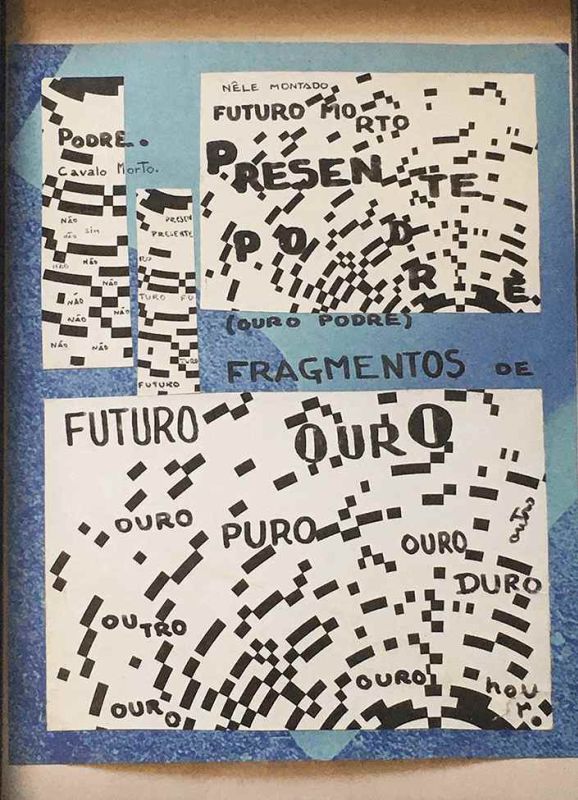 PODRE.
Cavalo Morto.
NÃO
NÃO SIM
NÃO NÃO
NÃO
NÃO
NÃO NÃO
NÃO NÃO
PRESEN
PRESENTE
TURO FU
TURO
FUTURO
NÊLE MONTADO
FUTURO MORTO
PRESENTE
PODRE
(OURO PODRE)
FRAGMENTOS DE
FUTURO OURO
DURO PURO OURO
DURO
OUTRO
OURO
OURO